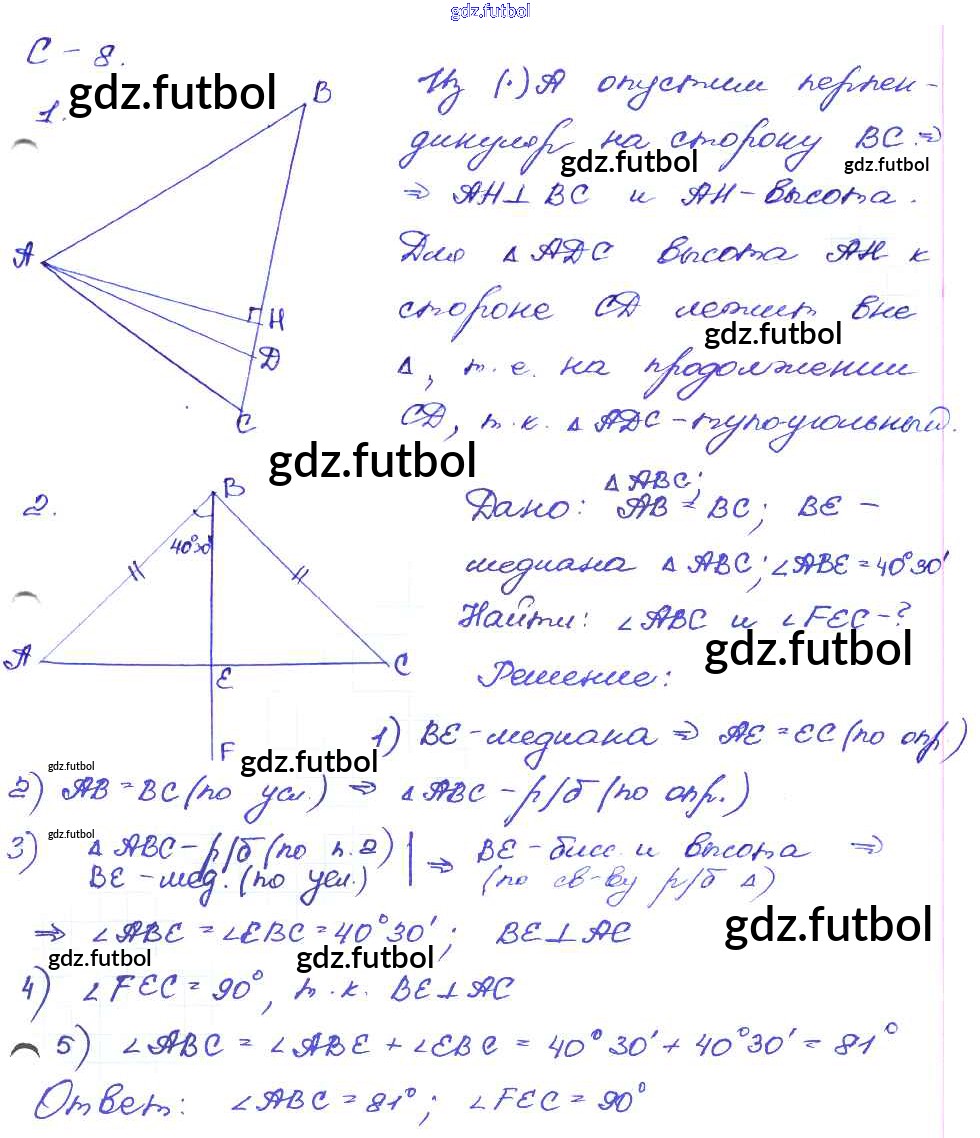 gdz.futbol
С - 8.
gdz.futbol
1.
B
A
H
D
C
Из (·) A опустим перпен-
дикуляр на сторону BC. ⇒
gdz.futbol
gdz.futbol
⇒ AH ⊥ BC и AH - высота.
Для △ ADC высота AH к
стороне CD лежит вне
gdz.futbol
△, т.е. на продолжении
CD, т.к. △ ADC - тупоугольный.
gdz.futbol
2.
B
40°30'
A
E
C
F
△ ABC;
Дано: AB = BC; BE -
медиана △ ABC; ∠ABE = 40°30'
Найти: ∠ABC и ∠FEC - ?
gdz.futbol
Решение:
1) BE - медиана ⇒ AE = EC (по опр.)
gdz.futbol
gdz.futbol
2) AB = BC (по усл.) ⇒ △ ABC - р/б (по опр.)
gdz.futbol
3) △ ABC - р/б (по п. 2) | ⇒ BE - бисс. и высота ⇒
BE - мед. (по усл.) (по св-ву р/б △)
⇒ ∠ABE = ∠EBC = 40°30'; BE ⊥ AC
gdz.futbol
gdz.futbol
gdz.futbol
4) ∠FEC = 90°, т.к. BE ⊥ AC
5) ∠ABC = ∠ABE + ∠EBC = 40°30' + 40°30' = 81°
Ответ: ∠ABC = 81°; ∠FEC = 90°